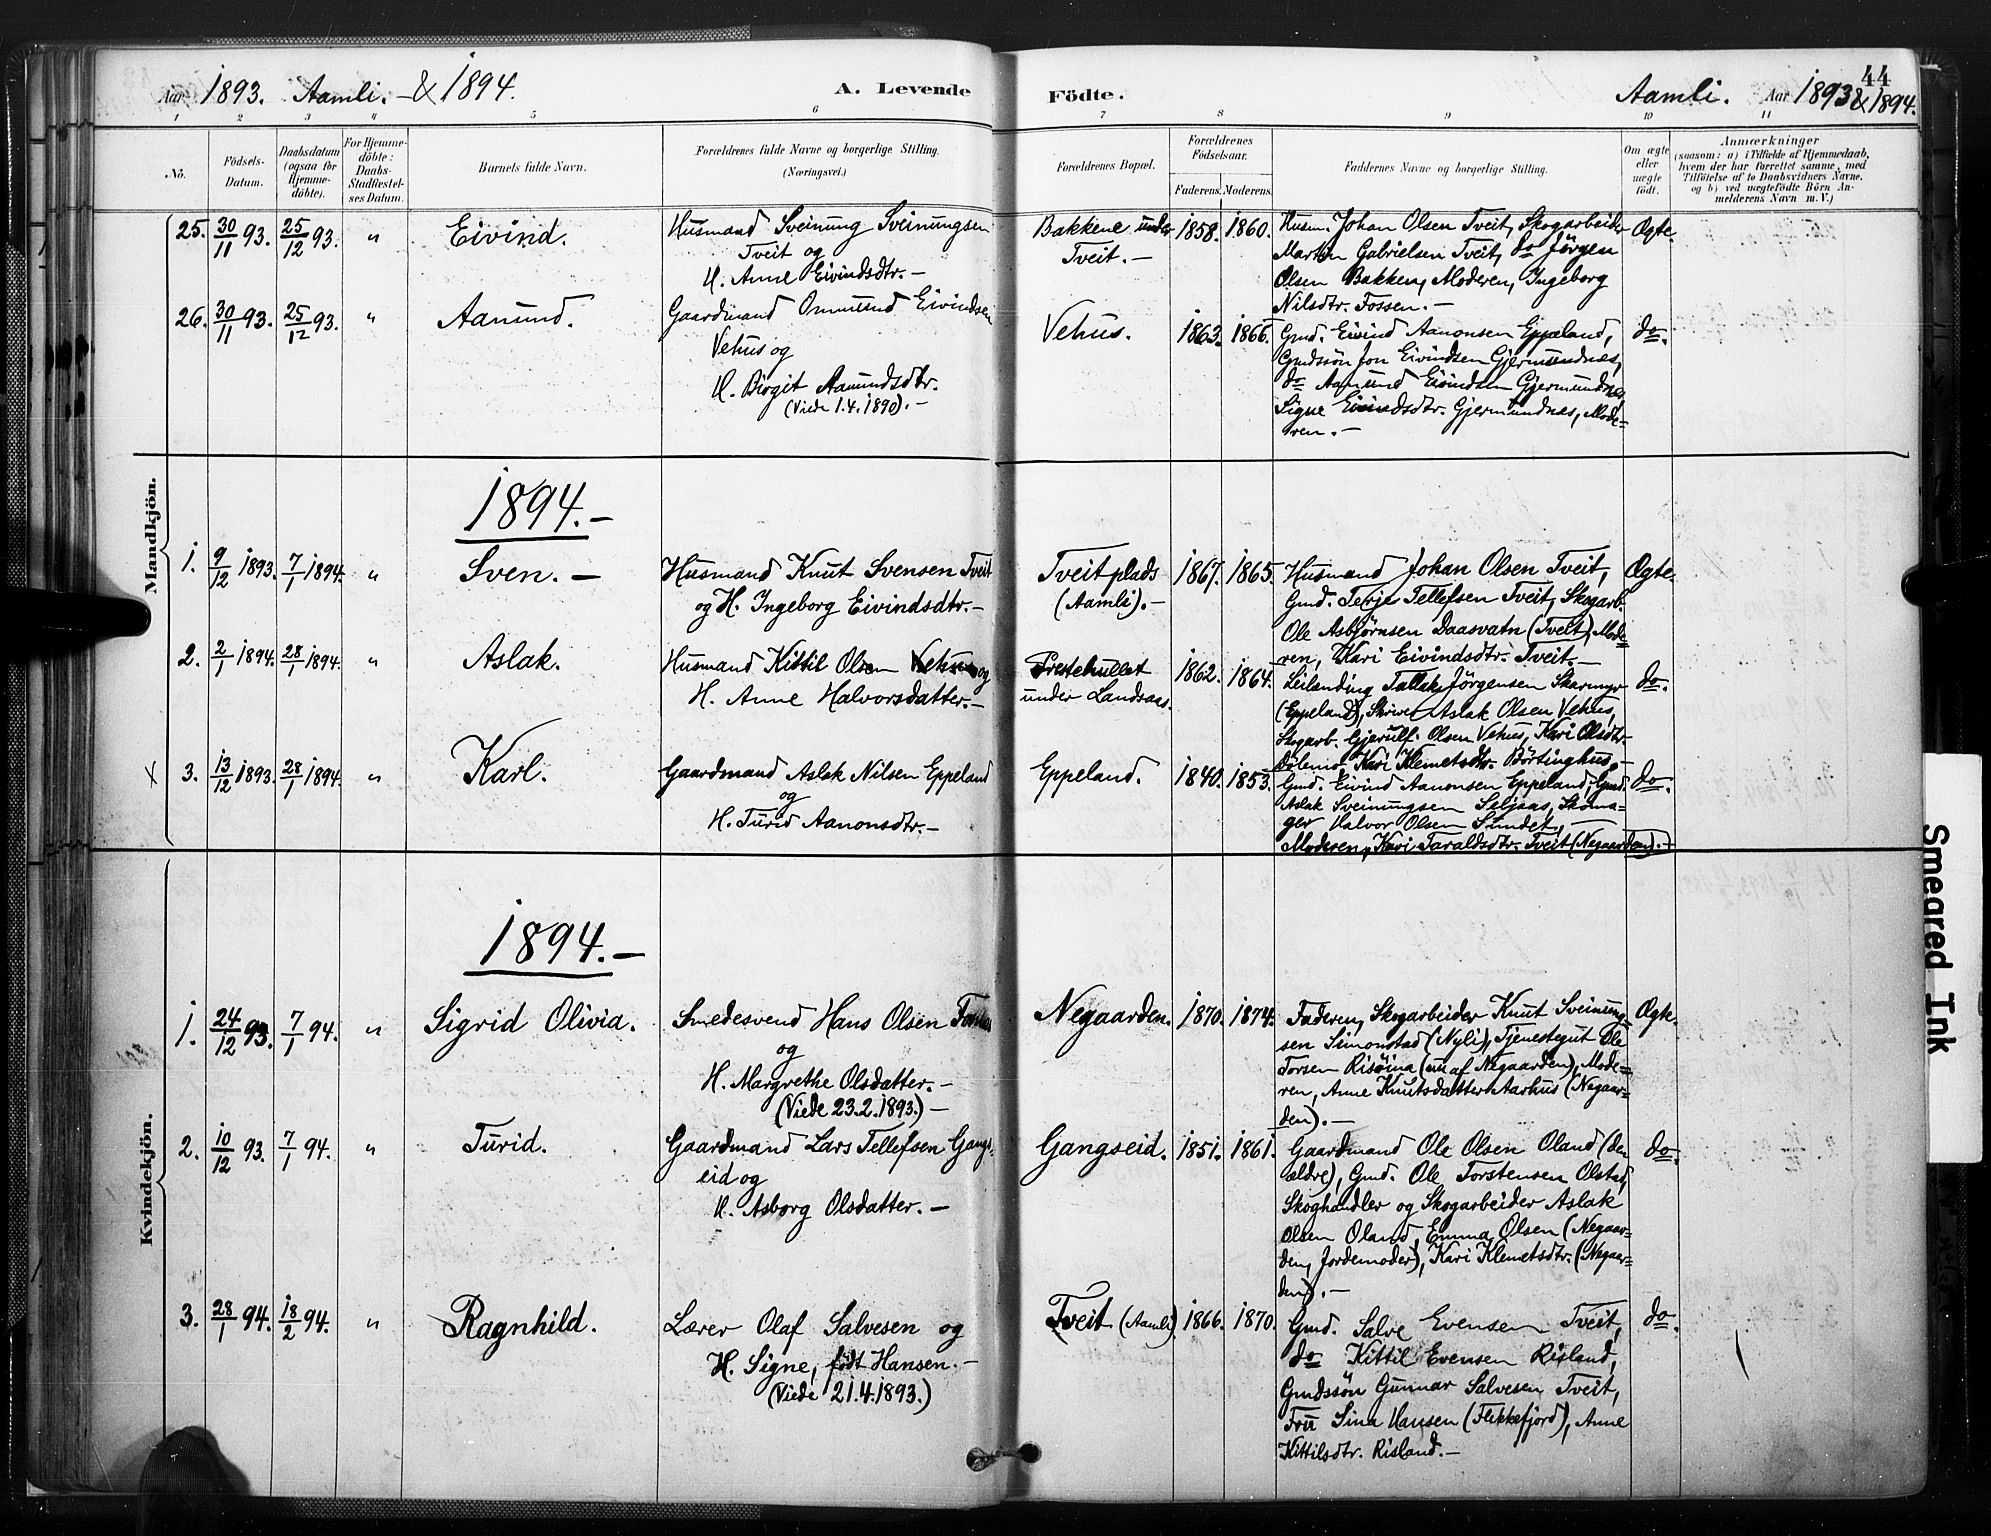 Aar 1893. Aamli. – & 1894.
A. Levende
Födte.
Aamli. Aar 1893 & 1894.
44
1 2 3 4 5 6 7 8 9 10 11
No.
Födsels-
Datum.
Daabsdatum
(ogsaa for
Hjemme-
döbte).
For Hjemme-
döbte:
Daabs-
Stadfæstel-
ses Datum.
Barnets fulde Navn.
Forældrenes fulde Navne og borgerlige Stilling.
(Næringsvei.)
Forældrenes Bopæl.
Forældrenes
Födselsaar.
Faderens. Moderens.
Faddernes Navne og borgerlige Stilling.
Om ægte
eller
uægte
födt.
Anmærkninger
(saasom: a) i Tilfælde af Hjemmedaab,
hvem der har forrettet samme, med
Tilföielse af to Daabsvidners Navne,
og b) ved uægtefödte Börn An-
melderens Navn m. V.)
25. 30/11 93. 25/12 93. " Eivind.
Husmand Sveinung Sveinungsen
Tveit og
H. Anne Eivindsdtr. –
Bakkene under
Tveit. –
1858. 1860.
Husm. Johan Olsen Tveit, Skogarbeider
Martin Gabrielsen Tveit, do Jörgen
Olsen Bakken, Moderen, Ingeborg
Nilsdtr. Fossen. –
Ægte.
26. 30/11 93. 25/12 93. " Aamund.
Gaardmand Ommund Eivindsen
Vehus og
H. Birgit Aamundsdtr.
(Viede 1.4.1890). –
Vehus.
1863. 1866.
Gmd. Eivind Aanonsen Eppeland,
Gmdssön Jon Eivindsen Gjermundnes,
do Aamund Eivindsen Gjermundnes,
Signe Eivindsdtr. Gjermundnes, Mode=
ren. –
do.
Mandkjön.
1894. –
1. 9/12 1893. 7/1 1894. " Sven. –
Husmand Knut Svensen Tveit
og H. Ingeborg Eivindsdtr. –
Tveitplads
(Aamli). –
1867. 1865.
Husmand Johan Olsen Tveit,
Gmd. Terje Tellefsen Tveit, Skogarb.
Ole Asbjörnsen Daasvatn (Tveit), Mode=
ren, Kari Eivindsdtr. Tveit. –
Ægte.
2. 2/1 1894. 28/1 1894. " Aslak.
Husmand Kittil Olsen Vehus og
H. Anne Halvorsdatter. –
Prestehullet
under Landsaas.
1862. 1864.
Leilending Tallak Jörgensen Skarmyr
(Eppeland), Skriver Aslak Olsen Vehus,
Skogarb. Gjerulf Olsen Vehus, Kari Olsdtr.
Dölemo, Kari Klemetsdtr. Börtinghus. –
do.
x 3. 13/12 1893. 28/1 1894. " Karl.
Gaardmand Aslak Nilsen Eppeland
og
H. Turid Aanonsdtr. –
Eppeland.
1840. 1853.
Gmd. Eivind Aanonsen Eppeland, Gmd.
Aslak Sveinungsen Seljaas, Skoma=
ger Halvor Olsen Sundet, –
Moderen, Kari Taraldsdtr. Tveit (Negaarden). –
do.
Kvindekjön.
1894. –
1. 24/12 93. 7/1 94. " Sigrid Olivia.
Smedesvend Hans Olsen
og
H. Margrethe Olsdatter. –
(Viede 23.2.1893.) –
Negaarden.
1870. 1874.
Faderen, Skogarbeider Knut Sveinung=
sen Simonstad (Nyli), Tjenestegut Ole
Torsen Risöina (nu af Negaarden), Mode=
ren, Anne Knutsdatter Aarhus (Negaar=
den). –
Ægte.
2. 10/12 93. 7/1 94. " Turid.
Gaardmand Lars Tellefsen Gangs=
eid og
H. Asborg Olsdatter. –
Gangseid.
1851. 1861.
Gaardmand Ole Olsen Oland (den
ældre), Gmd. Ole Torstensen Olstad,
Skoghandler og Skogarbeider Aslak
Olsen Oland, Emma Olsen (Negaar=
den, Jordemoder), Kari Klemetsdtr. (Negaar=
den). –
do.
3. 28/1 94. 18/2 94. " Ragnhild.
Lærer Olaf Salvesen og
H. Signe, födt Hansen. –
(Viede 21.4.1893.)
Tveit (Aamli)
1866. 1870.
Gmd. Salve Evensen Tveit,
do Kittil Evensen Risland,
Gmdssön Gunnar Salvesen Tveit,
Fru Sina Hansen (Flekkefjord), Anne
Kittilsdtr. Risland. –
do.
Smeared Ink